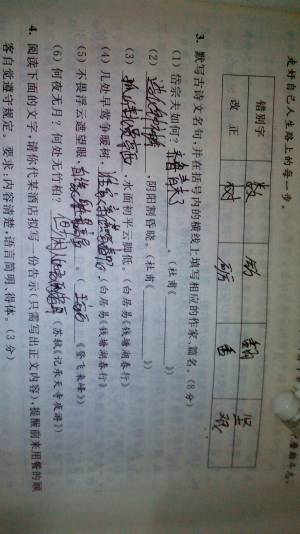 走好自己人生路上的每一步。
错别字
改正
3. 默写古诗文名句，并在括号内的横线上填写相应的作家、篇名。(8分)
(1) 岱宗夫如何？。(杜甫《》)
(2) 造化钟神秀，阴阳割昏晓。(杜甫《》)
(3) 孤山寺北贾亭西，水面初平云脚低。(白居易《钱塘湖春行》)
(4) 几处早莺争暖树，谁家新燕啄春泥。(白居易《钱塘湖春行》)
(5) 不畏浮云遮望眼，自缘身在最高层。(王安石《登飞来峰》)
(6) 何夜无月？何处无竹柏？但少闲人(苏轼《记承天寺夜游》)
4. 阅读下面的文字，请你代某酒店拟写一份告示(只需写出正文内容)，提醒前来用餐的顾
客自觉遵守规定。要求：内容清楚，语言简明、得体。(3分)